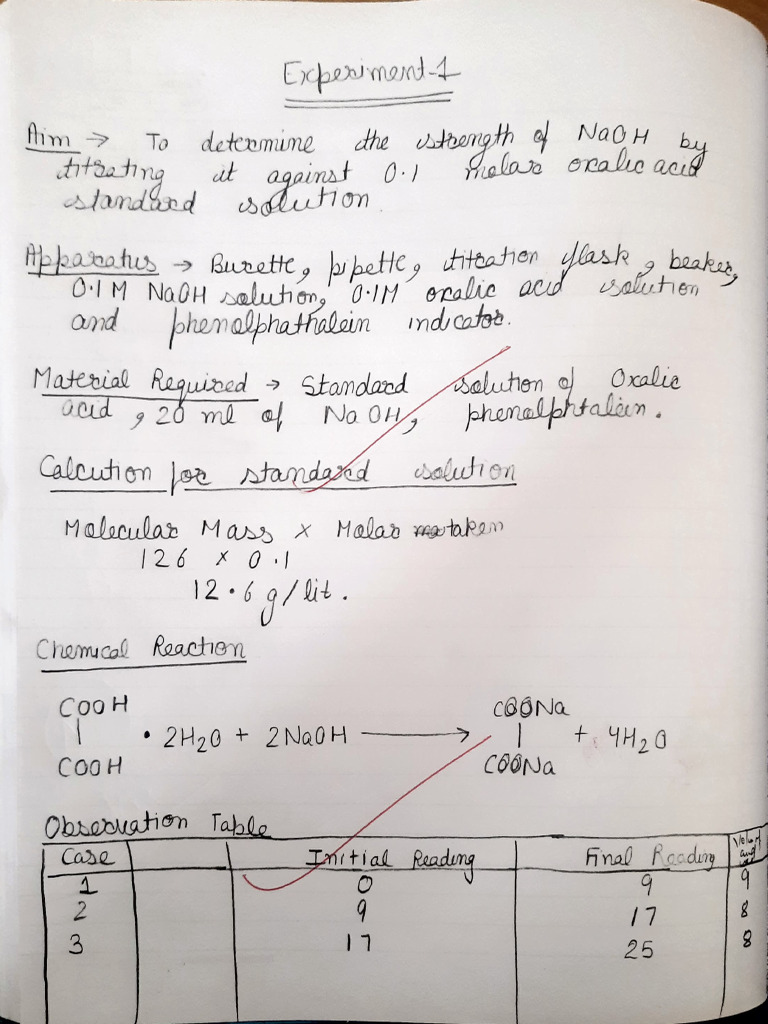 Experiment-1
Aim → To determine the strength of NaOH by
titrating it against 0.1 molar oxalic acid
standard solution
Apparatus → Burette, pipette, titration flask, beaker,
0.1M NaOH solution, 0.1M oxalic acid solution
and phenolphathalein indicator.
Material Required → Standard solution of Oxalic
acid, 20 ml of NaOH, phenolphtalein.
Calcution for standard solution
Molecular Mass x Molar taken
126 x 0.1
12.6 g/lit.
Chemical Reaction
COOH COONa
| • 2H2O + 2NaOH → | + 4H2O
COOH COONa
Observation Table
Case Initial Reading Final Reading
1 0 9 9
2 9 17 8
3 17 25 8